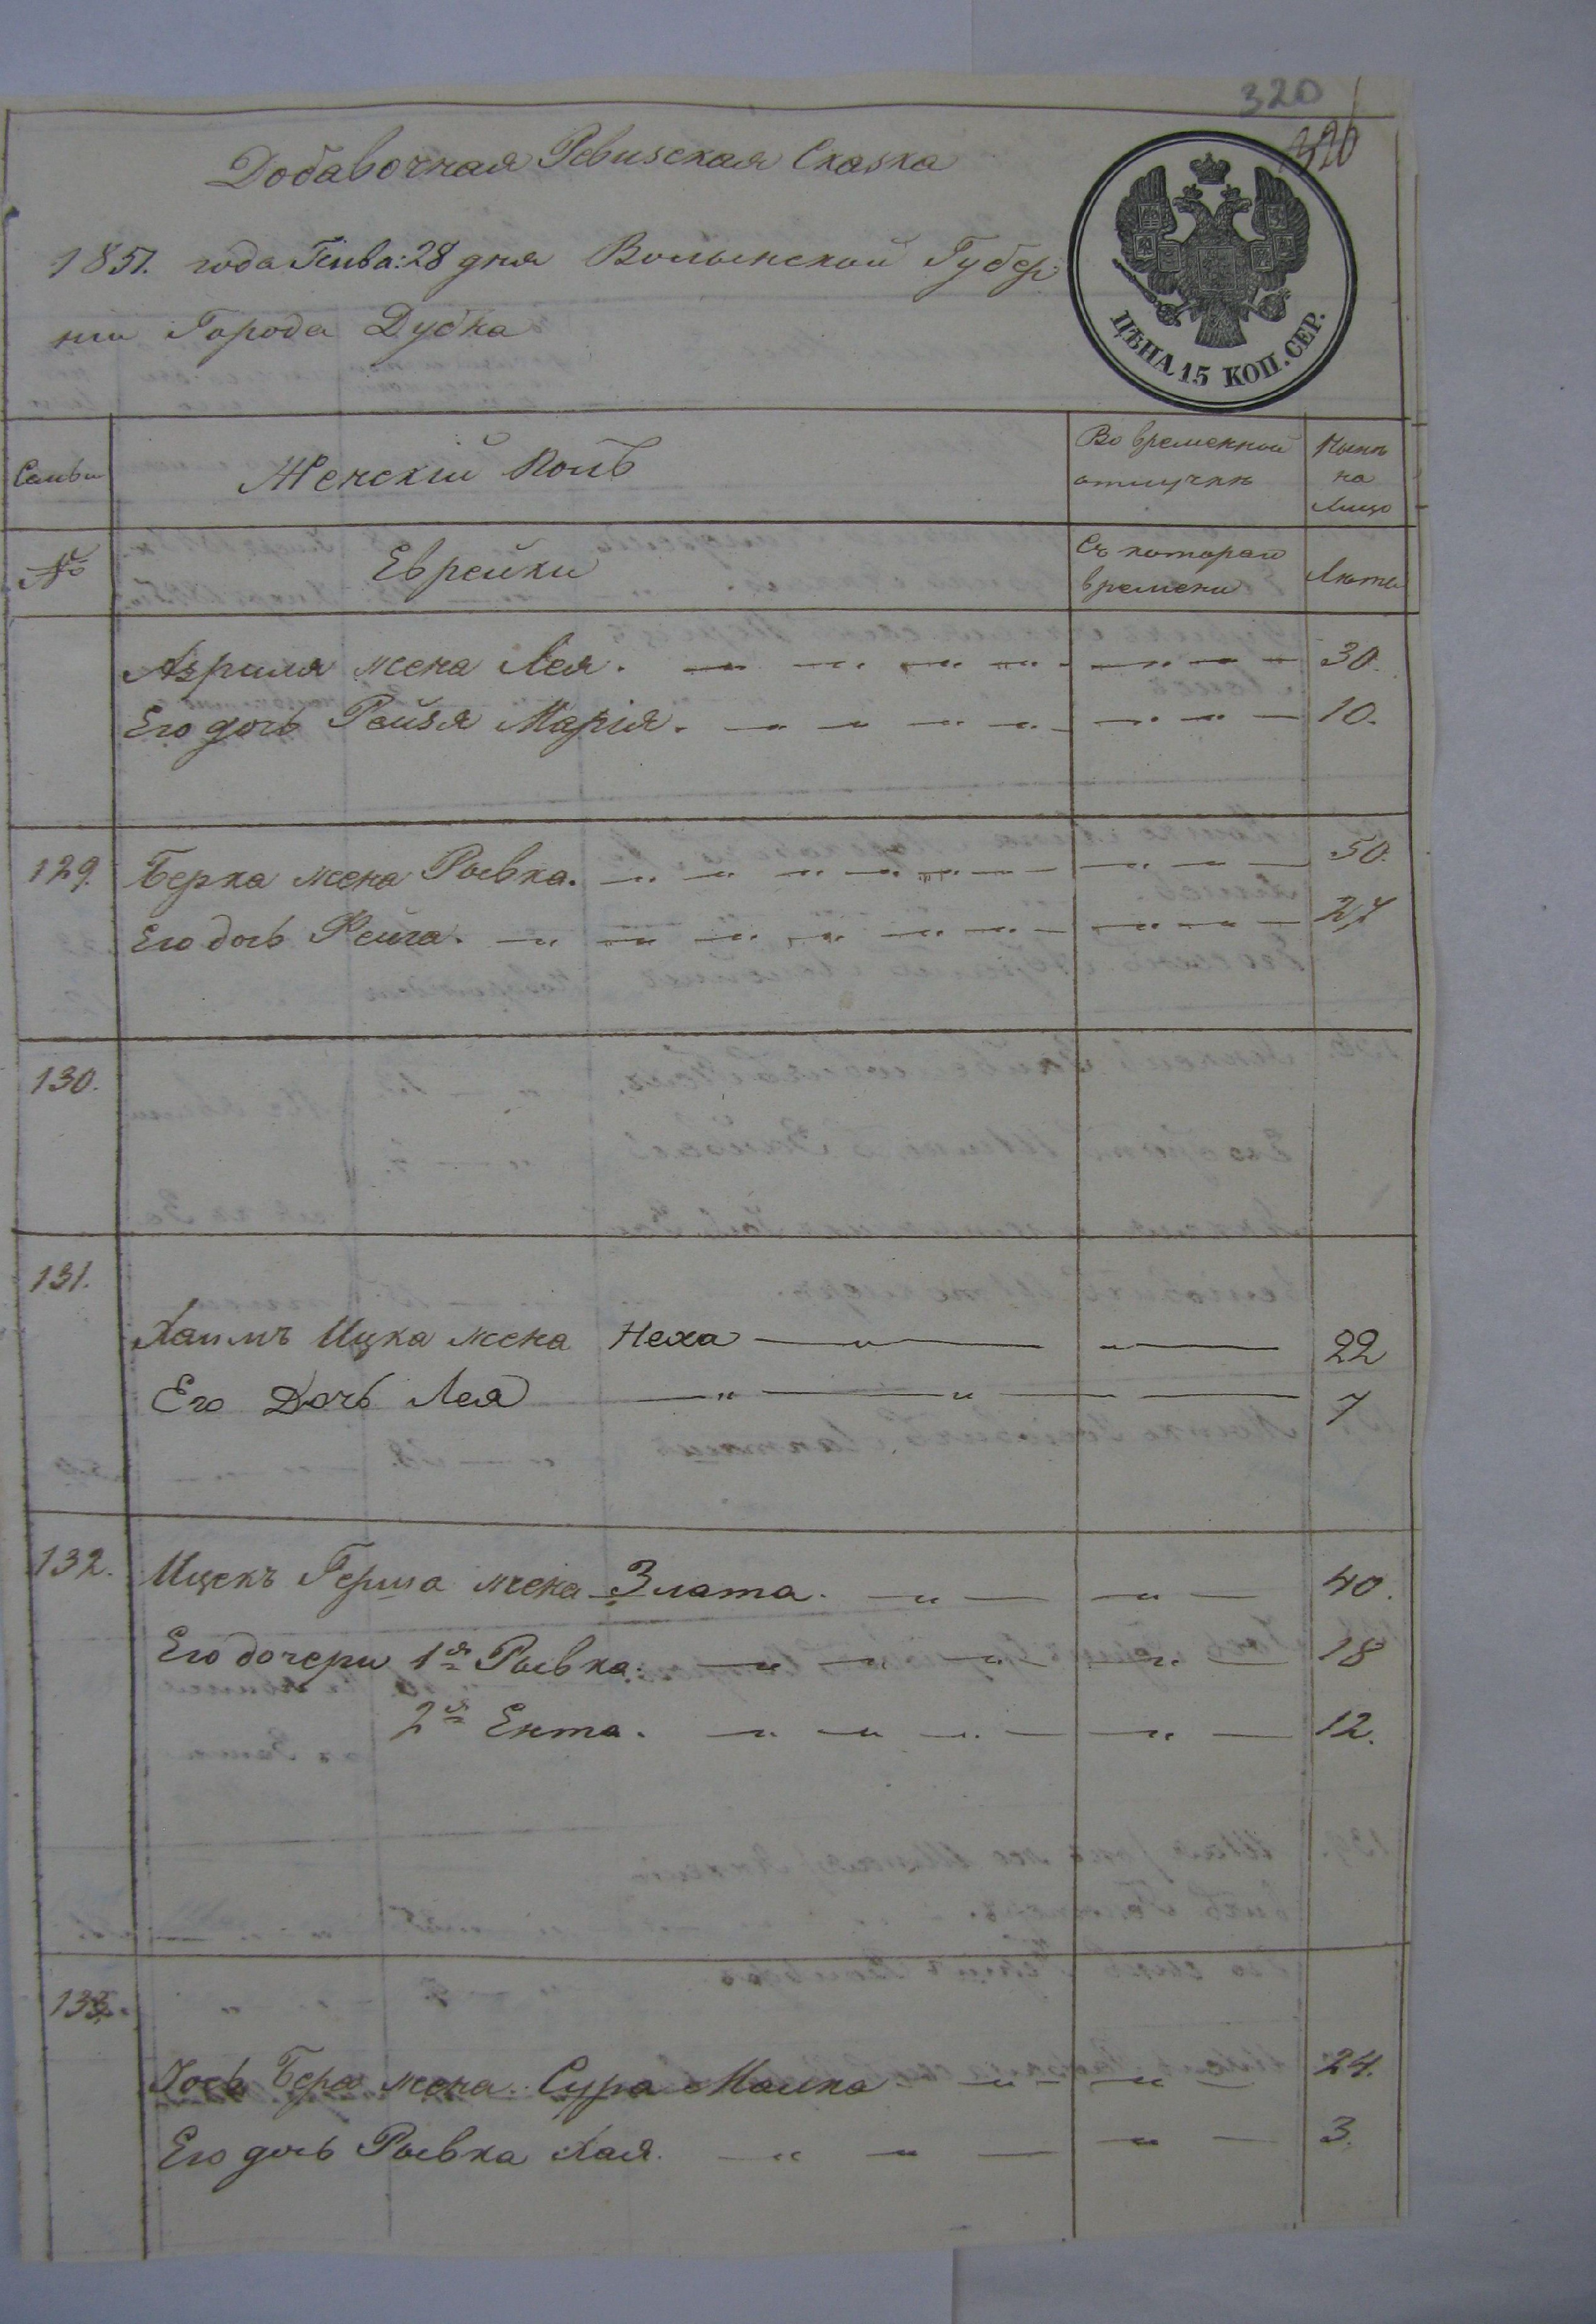 320
320
Добавочная Ревизская Сказка
1851. года Генва: 28 дня Волынской Губер:
нии Города Дубна
ЦѢНА 15 КОП. СЕР.
Семьи
Женскій Полъ
Во временной отлучкѣ
Нынѣ на Лицо
№
Еврейки
Съ котораго времени
Лѣта
Азриля жена Лея. 30.
Его дочь Рейзя Марія. 10.
129. Берка жена Рывка. 50.
Его дочь Фейга. 27
130.
131.
Хаимъ Ицка жена Неха 22
Его Дочь Лея 7
132. Ицекъ Герша жена Злата. 40.
Его дочери 1я Рывка. 18
2я Ента. 12.
133.
Іось Бера жена Сура Малка 24.
Его дочь Рывка Хая. 3.